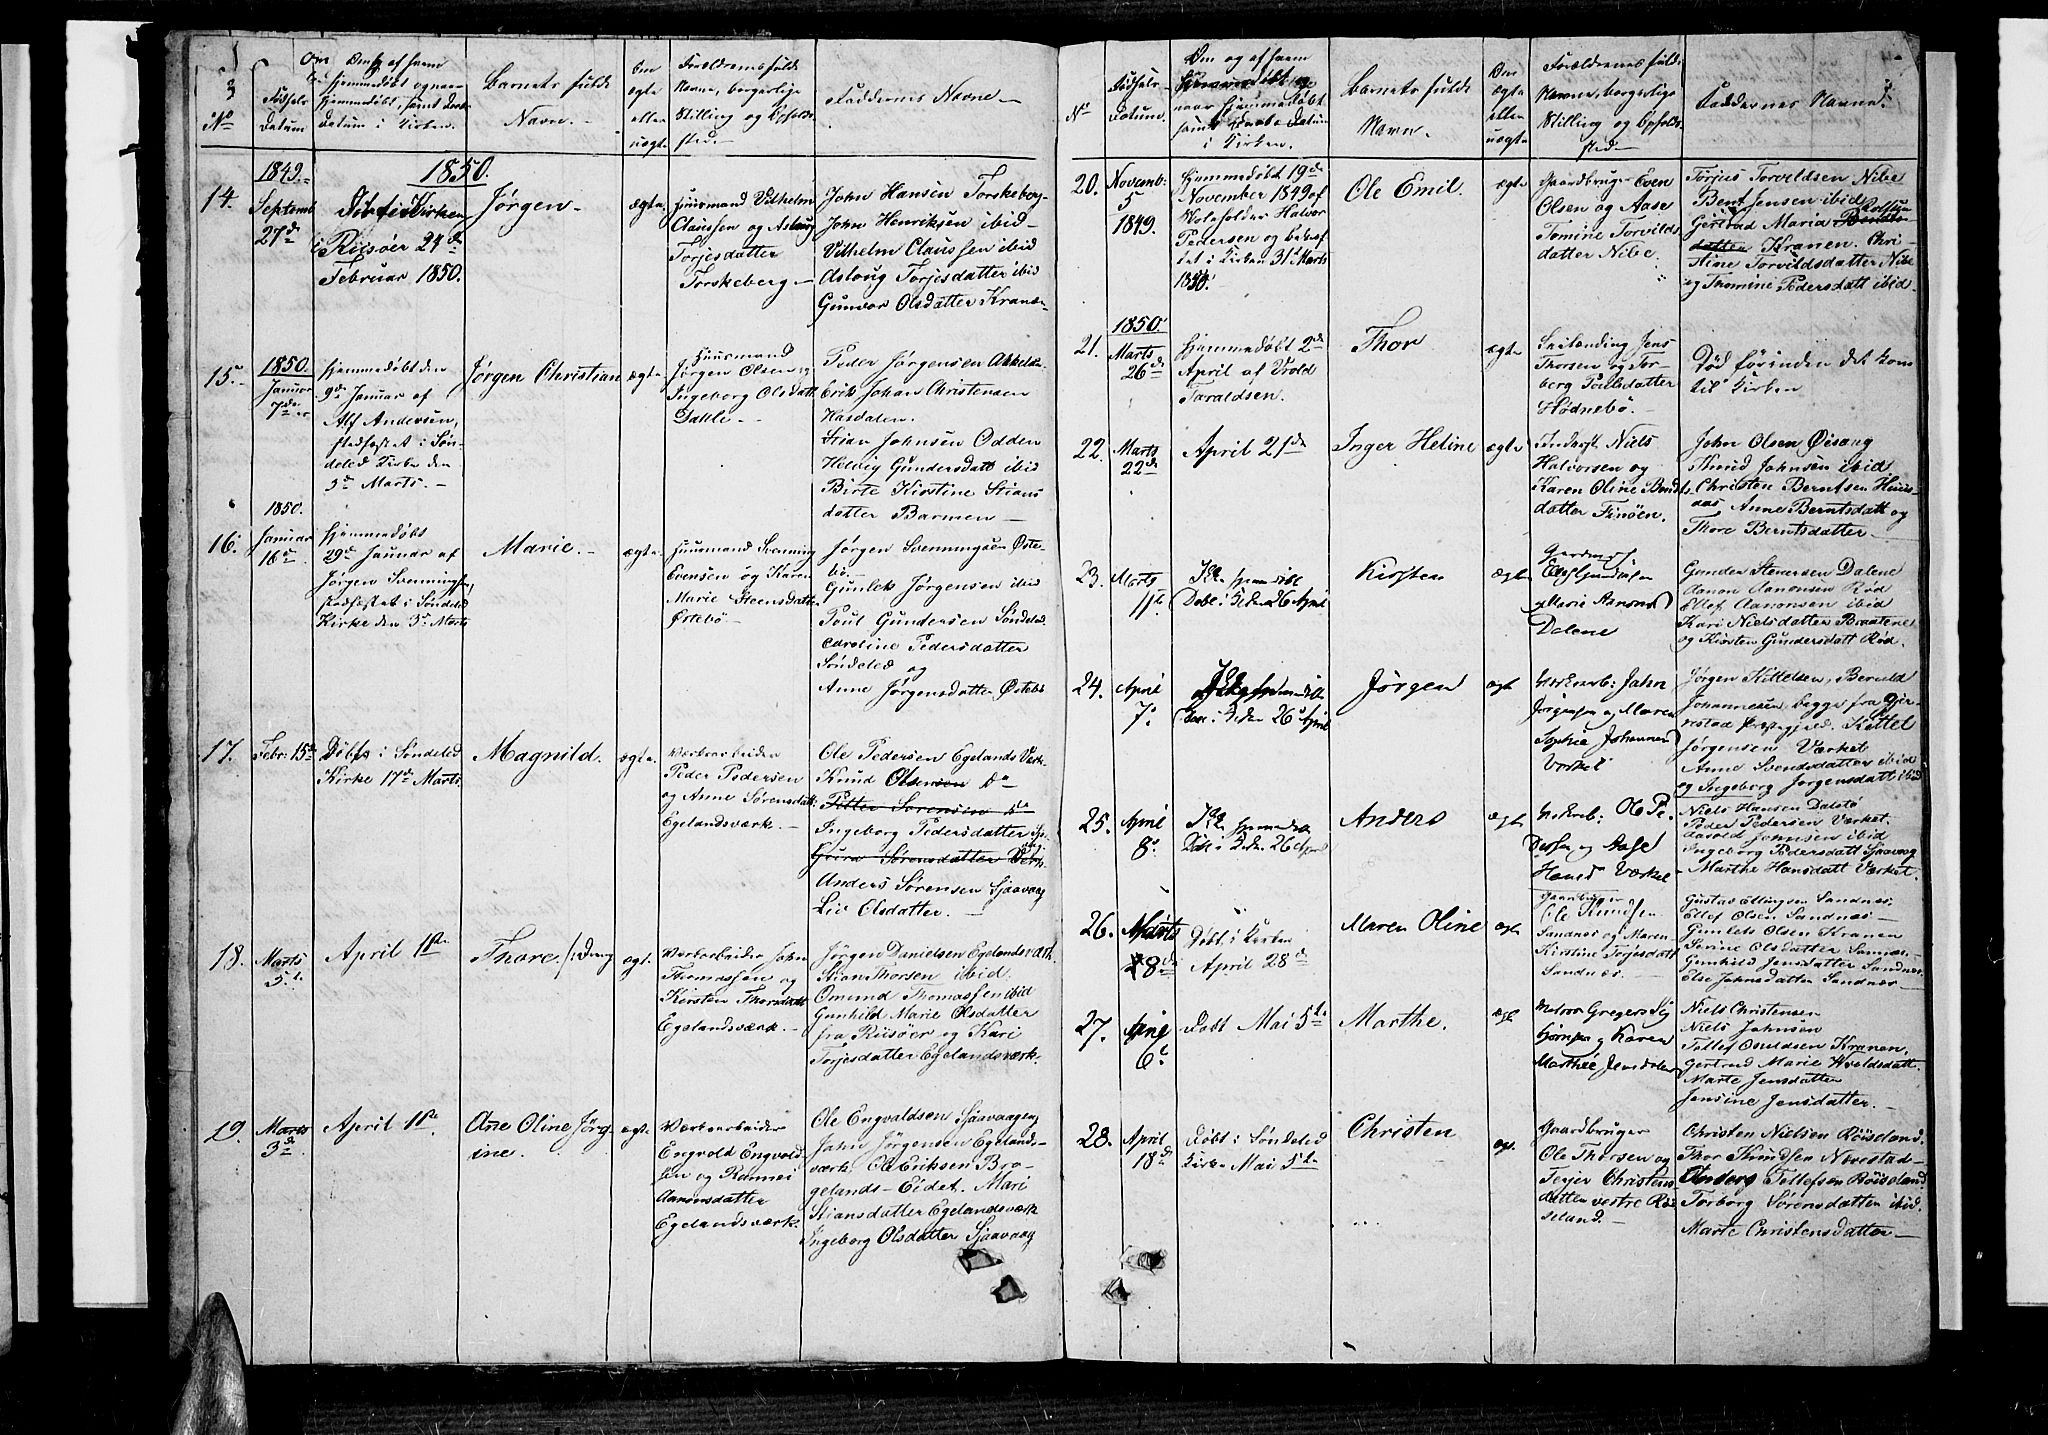 3
No
Fødsels
Datum
Om Døbt af hvem
hjemmedøbt og naar
hjemmedøbt, samt Daabs
Datum i Kirken.
Barnets fulde
Navn.
Om
ægte
eller
uægte
Forældrenes fulde
Navne, borgerlige
Stilling og Opholds-
sted.
Faddernes Navne
1849.
1850.
14.
Septemb
27de
Døbt i Kirken
i Riisöer 24de
Februar 1850.
Jørgen
ægte
Huusmand Vilhelm
Claussen og Aslaug
Torjesdatter
Torskeberg
John Hansen Torskeberg
John Henriksen ibid
Vilhelm Claussen ibid
Asloug Torjesdatter ibid
Gunvor Olsdatter Kranen
15
1850.
Januar
7de
hjemmedøbt den
9de Januar af
Alf Andersen,
stadfæstet i Søn-
deled Kirke den
3de Marts.
Jørgen Christian
ægte
Huusmand
Jørgen Olsen og
Ingeborg Olsdatt.
Dahle
Peder Jørgensen
Erik Johan Christensen
Hasdalen.
Stian Johnsen Odden
Helvig Gundersdatt ibid
Birte Kirstine Stians
datter Barmen
1850.
16.
Januar
16de
hjemmedøbt
29de Januar af
Jørgen Svenningsen,
stadfæstet i Söndeled
Kirke den 3de Marts
Marie.
ægte.
Huusmand Svenning
Evensen og Karen
Marie Steensdatter
Østebö
Jørgen Svenningsen Øste-
bö
Gunlek Jørgensen ibid
Poul Gundersen Söndeled
Caroline Pedersdatter
Söndeled og
Anne Jørgensdatter Østebö
17.
Febr. 15de
Döbt i Söndeled
Kirke 17de Marts.
Magnild.
ægte.
Værksarbeider
Peder Pedersen
og Anne Sørensdatt.
Egelandsværk.
Ole Pedersen Egelands Værk
Knud Olsensen do
Petter Sørensen do
Ingeborg Pedersdatter
Gura Sørensdatter
Anders Sørensen Sjaavaag
Liv Olsdatter.
18.
Marts
5te
April 1ste
Thore.
ægt.
Værksarbeider John
Thomassen og
Kirsten Thorsdatt
Egelandsværk.
Jørgen Danielsen Egelandsværk.
Stian Thorsen ibid.
Omund Thomassen ibid
Gunhild Marie Olsdatter
fra Riisöer og Kari
Torjesdatter Egelandsværk.
19.
Marts
3de
April 1ste.
Ane Oline Jörg-
ine.
ægt.
Værksarbeider
Engvold Engvold-
sen og Rannei
Aanonsdatter
Egelandsværk.
Ole Engvaldsen Sjaavaagen
John Jörgensen Egelands-
værk. Ole Eriksen Bro-
gelands-Eidet. Mari
Stiansdatter Egelandsværk
Ingeborg Olsdatter Sjaavaag
No
Fødsels
Datum.
Om og af hvem
hjemmedøbt og
naar hjemmedøbt
samt Daabs Datum
i Kirken.
Barnets fulde
Navn.
Om
ægte
eller
uægte
Forældrenes fulde
Navne, borgerlige
Stilling og Opholds-
sted
Faddernes Navne.
20.
Novemb:
5
1849.
Hjemmedöbt 19de
November 1849 af
Holvor
Pedersen og
i Kirken 31te Marts
1850.
Ole Emil.
ægte
Gaardbruger Even
Olsen og Aase
Tomine Torvilds
datter Nibe.
Torjus Torveldsen Nibe
Bent Jensen ibid
Gertrud Maria
datter Kranen. Chri
stine Torvildsdatter Nibe
og Thomine Pedersdatt ibid
1850.
21.
Marts
26de
hjemmedöbt 2de
April af Vrold
Taraldsen.
Thor
ægte
Jens
Thorsen og Tor-
berg Poulsdatter
Hødnebö.
Död förinden det kom
til Kirken
22.
Marts
22de
April 21de
Inger Heline
ægte
Niels
Halvorsen og
Karen Oline Bendts
datter Finöen.
John Olsen Øisang
Thorid Johnsen ibid
Christen Berntsen Huus-
aas Anne Berntsdatt og
Thore Berntsdatter
23.
Marts
11te
hjemmedöbt
Døbt i Kirken 26 April
Kirsten
ægte
Gundersen
og Marie Aanonsd
Dalene
Gunder Stenersen Dalene
Aanon Aanonsen Röd
Ellef Aanonsen ibid
Kari Nielsdatter Braatene
og Kirsten Gundersdatt Röd.
24.
April
7de
Döbt i Kirken 26 April
Jørgen
ægt
Værksarb: John
Jørgensen og Maren
Sophie Johannesd
Værket
Jörgen Kittelsen, Bernt
Johannesen, begge fra Gjer-
restad Præstegjeld. Kittel
Jörgensen Værket
Anne Svendsdatter ibid
og Ingeborg Jorgensdatt ibid
25.
April
8de
Døbt i Kirken 26 April
Anders
ægte
Værksarb: Ole Pe-
dersen og Aase
Hansd Værket
Niels Hansen Dalstö
Peder Pedersen Værket.
Johnsen ibid
Ingeborg Pedersdatt Sjaavaag
Marthe Hansdatt Værket.
26.
Marts
28de
Döbt i Kirken
April 28de
Maren Oline
ægte
Gaardbruger
Ole Knudsen
Sandnæs og Maren
Kirstine Torjusdatt
Sandnæs.
Gustav Ellingsen Sandnæs.
Ellef Olsen Sandnæs
Gunleks Olsen Kranen
Serine Olsdatter Sandnæs.
Gunhild Jensdatter Sandnæs.
Else Johnsdatter Sandnæs
27.
April
6te
Döbt Mai 5te
Marthe.
ægt
Matros Gregers
og Karen
Marthe Jensdatter
Niels Christensen
Niels Johnsen
Tellef Knudsen Kranen,
Gertrud Marie Wroldsdatt.
Marte Jensdatter
Jensine Jensdatter.
28.
April
18de
Döbt i Söndeled
Kirke Mai 5te
Christen
ægt.
Gaardbruger
Ole Thorsen og
Terjer Christens
datter vestre Röi
seland.
Christen Nielsen Röiseland.
Thor Knudsen Navestad
Anders Tellefsen Röiseland.
Torborg Sörensdatter ibid.
Marte Christensdatter